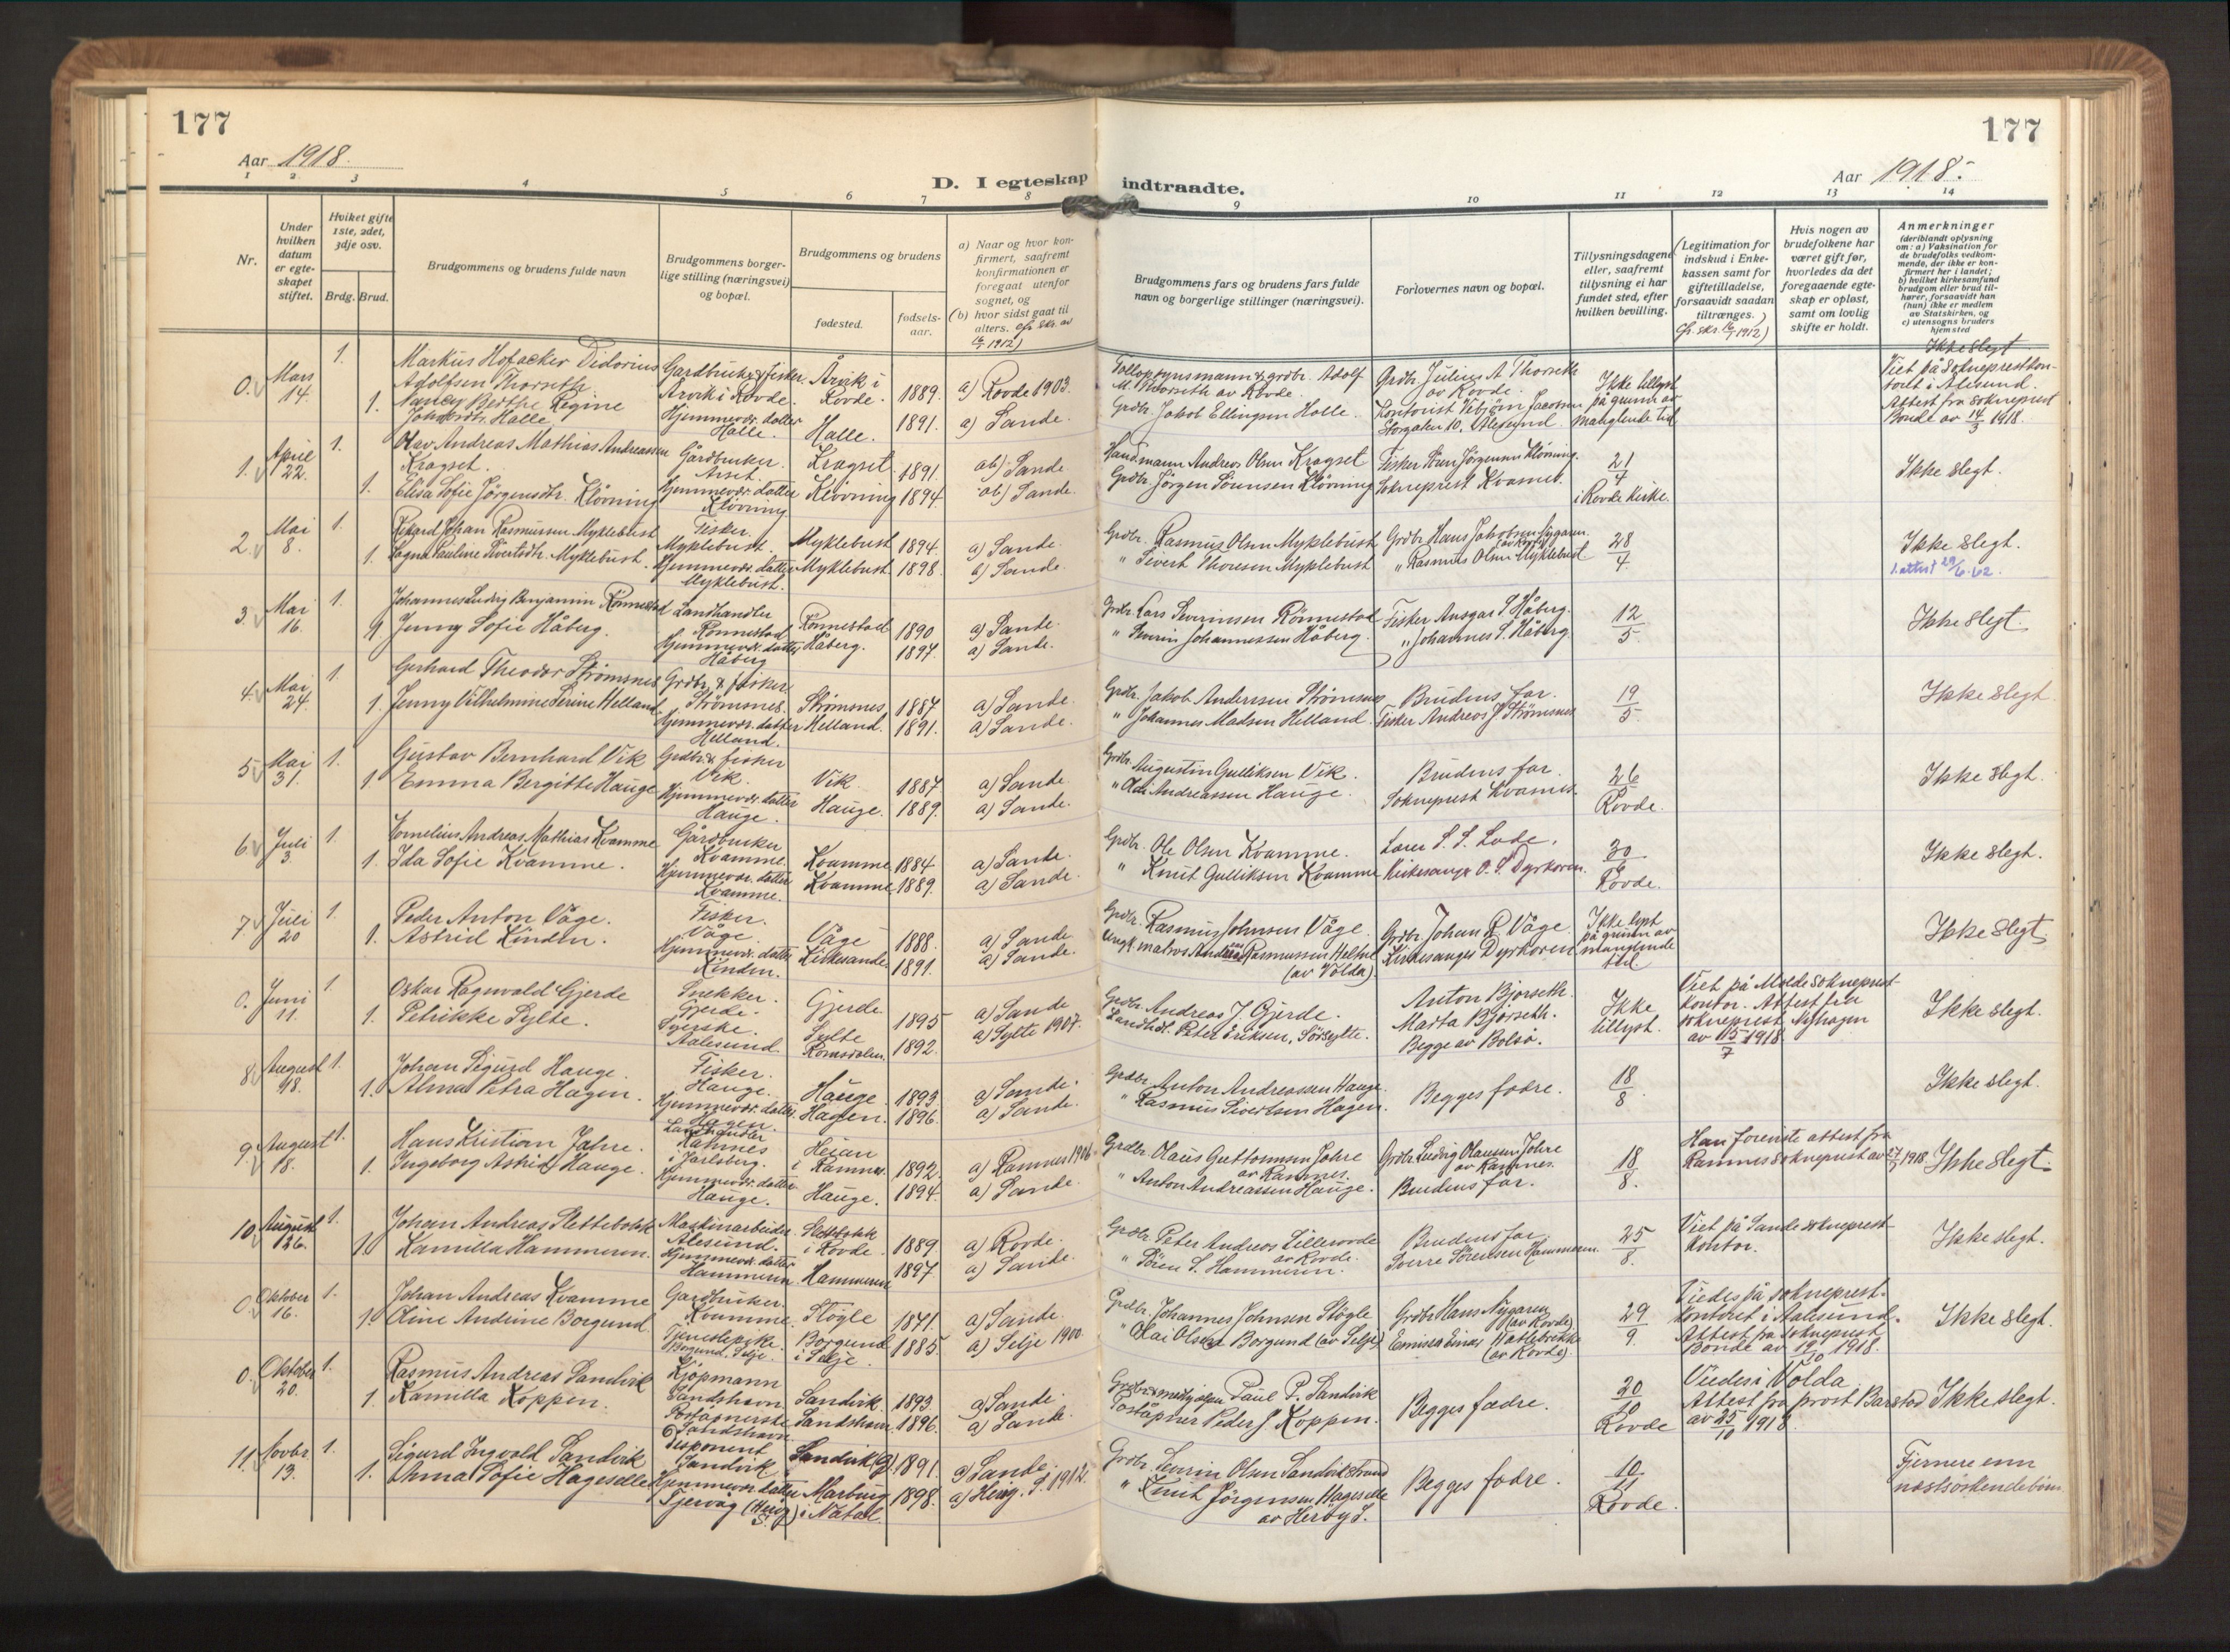 177
177
Aar 1918.
Aar 1918.
D. I egteskap indtraadte.
1 2 3 4 5 6 7 8 9 10 11 12 13 14
Nr.
Under hvilken datum er egteskapet stiftet.
Hviket gifte 1ste, 2det, 3dje osv.
Brdg. Brud.
Brudgommens og brudens fulde navn
Brudgommens borgerlige stilling (næringsvei) og bopæl.
Brudgommens og brudens
fødested.
fødselsaar.
a) Naar og hvor konfirmert, saafremt konfirmationen er foregaat utenfor sognet, og
b) hvor sidst gaat til alters.
Brudgommens fars og brudens fars fulde navn og borgerlige stillinger (næringsvei).
Forlovernes navn og bopæl.
Tillysningsdagene eller, saafremt tillysning ei har fundet sted, efter hvilken bevilling.
Legitimation for indskud i Enkekassen samt for giftetilladelse, forsaavidt saadan tiltrænges.
Hvis nogen av brudefolkene har været gift før, hvorledes da det foregaaende egteskap er opløst, samt om lovlig skifte er holdt.
Anmerkninger
(deriblandt oplysning om: a) Vaksination for de brudefolks vedkommende, der ikke er konfirmert her i landet; b) hvilket kirkesamfund brudgom eller brud tilhører, forsaavidt han (hun) ikke er medlem av Statskirken, og c) utensogns bruders hjemsted
0. Mars 14. 1. Markus Hofacker Didorius Gardbruker & fisker Årvik i
Adolfsen Thorseth Arvik i Rovde. Rovde. 1889. a) Rovde 1903.
1. Nancy Berthe Regine Hjemmevær. datter
Halle Halle. Halle. 1891. a) Sande.
Adolf M. Thorseth av Rovde.
Grdbr. Jakob Ellingsen Halle.
Grdbr. Julius A Thorseth av Rovde.
Kontorist Jacobsen Storgaten 10. Alesund
Ikke tillyst på grunn av manglende tid
Ikke slegt
Viet på Sokneprestkontoret i Alesund.
Attest fra sokneprest Bonde av 14/3 1918.
1. April 22. 1. Olav Andreas Mathias Andreassen Kragset. Gårdbruker. Kragset 1891 ab) Sande
1. Elisa Sofie Jørgensdtr. Kløvning Hjemmevær. datter Kløvning Kløvning 1894. ab) Sande.
Andreas Olsen Kragset
Grdbr. Jørgen Sørensen Kløvning
Fisker Søren Jørgensen Kløvning.
Sokneprest Kvamen.
21/4 i Rovde Kirke.
Ikke slegt.
2. Mai 8. 1. Rikard Johan Rasmussen Myklebust Fisker. Myklebust. Myklebust 1894. a) Sande.
1. Sagna Pauline Sivertsdtr. Myklebust. Hjemmevær. datter Myklebust. Myklebust 1898. a) Sande.
Grdbr. Rasmus Olsen Myklebust
" Sivert Thoresen Myklebust
Grdbr. Hans Jakobsen Nygaren
" Rasmus Olsen Myklebust
28/4
Ikke slegt.
1. attest 29/6.62.
3. Mai 16. 1. Johannes Ludvig Benjamin Rønnestad Landhandler Rønnestad Rønnestad 1890 a) Sande.
1 Jenny Sofie Håberg. Hjemmevær. datter Håberg Håberg. 1897. a) Sande.
Grdbr. Lars Severinsen Rønnestad
" Severin Johannessen Håberg.
Fisker Ansgar S. Håberg.
" Johannes S. Håberg
12/5
Ikke slegt.
4. Mai 24. 1. Gerhard Theodor Strømsnes Grdbr. & fisker Strømsnes. Strømsnes 1887 a) Sande
1. Jenny Vilhelmine Serine Helland Hjemmevær. datter Helland. Helland. 1891. a) Sande.
Grdbr. Jakob Andersen Strømsnes
" Johannes Madsen Helland.
Brudens far.
Fisker Andreas J Strømsnes
19/5.
Ikke slegt.
5. Mai 31. 1. Gustav Bernhard Vik Grdbr. & fisker Vik. Vik 1887. a) Sande
1. Emma Bergitte Hauge Hjemmevær. datter Hauge. Hauge. 1889. a) Sande.
Grdbr. Augustin Gulliksen Vik.
" Andreassen Hauge.
Brudens far.
Sokneprest Kvamen.
26/5 Rovde.
Ikke slegt.
6. Juli 3. 1. Kornelius Andreas Mathias Kvamme Gårdbruker Kvamme. Kvamme 1884. a) Sande.
1. Ida Sofie Kvamme. Hjemmevær. datter Kvamme. Kvamme 1889. a) Sande.
Grdbr. Ole Olsen Kvamme.
" Knut Gulliksen Kvamme
Lærer S. S. Lade.
Kirkesanger O. S. Dyrkoren.
30/6 Rovde.
Ikke slegt.
7. Juli 20 1. Peder Anton Våge. Fisker. Våge Våge 1888. a) Sande
1. Astrid Kinden. Hjemmevær. datter Kinden. Kirkesande 1891. a) Sande.
Grdbr. Rasmus Johnsen Våge.
Ungk. matros Andreas Rasmussen (av Volda)
Grdbr. Johan R. Våge.
Kirkesanger Dyrkoren
Ikke lyst på grunn av manglende tid
Ikke slegt.
0. Juni 11. 1. Oskar Ragnvald Gjerde Snekker. Gjerde. Gjerde 1895 a) Sande
1. Petrikke Sylte. Syerske. Aalesund. Sylte Romsdalen. 1892. a) Sylte 1907.
Grdbr. Andreas J. Gjerde.
Landhdl. Peter Eriksen, Sørsylte.
Anton Bjørseth.
Marta Bjørseth.
Begge av Bolsø.
Ikke tillyst.
Viet på Molde sokneprestkontor. Attest fra sokneprest Nyhagen av 15/7 1918.
Ikke slegt.
8. August 18. 1. Johan Sigurd Hauge. Fisker. Hauge. Hauge 1893 a) Sande.
1. Alma Petra Hagen. Hjemmevær. datter. Hagen. Hagen. 1896. a) Sande.
Grdbr. Anton Andreassen Hauge.
" Rasmus Sivertsen Hagen.
Begges fædre.
18/8
Ikke slegt.
9. August 18. 1. Hans Kristian Jahre. Landhandler Ramnes i Jarlsberg. Heian i Ramnes. 1892 a) Ramnes 1906.
1. Ingeborg Astrid Hauge. Hjemmevær. datter Hauge. Hauge. 1894. a) Sande.
Grdbr. Olaus Guttormsen Jahre av Ramnes.
" Anton Andreassen Hauge.
Grdbr. Ludvig Olaussen Jahre av Ramnes.
Brudens far.
18/8.
Han foreviste attest fra Ramnes sokneprest av 27/7 1918.
Ikke slegt.
10. August 26. 1. Johan Andreas Slettebakk Maskinarbeider Alesund. Slettebakk i Rovde 1889. a) Rovde.
1. Kamilla Hammeren. Hjemmevær. datter Hammeren Hammeren 1897. a) Sande.
Grdbr. Peter Andreas Lillerovde av Rovde.
" Søren S. Hammeren.
Brudens far
Sverre Sørensen Hammeren.
25/8.
Viet på Sande sokneprestkontor.
Ikke slegt.
0. Oktober 16. 1. Johan Andreas Kvamme Gardbruker. Kvamme. Støgle 1871. a) Sande.
1. Oline Andrine Borgund. Tjenestepike. Borgund. Selje. Borgund i Selje. 1885. a) Selje 1900.
Grdbr. Johannes Johnsen Støgle
" Olai Olsen Borgund (av Selje)
Grdbr. Hans Nygaren (av Rovde)
Emissær Einar Hatlebrekke (av Rovde).
29/9.
Viedes på sokneprestkontoret i Aalesund. Attest fra sokneprest Bonde av 19/10 1918.
Ikke slegt.
0. Oktober 20. 1. Rasmus Andreas Sandvik Kjøpmann Sandshavn Sandvik. 1893 a) Sande.
1. Kamilla Koppen. Poståpnerske Sandshavn. Sandshavn. 1896. a) Sande.
Paul P. Sandvik
Poståpner Peder J Koppen.
Begges fædre.
20/10 Rovde
Viedes i Volda
Attest fra prost Barstad av 25/10 1918.
Ikke slegt.
11. Novbr. 13. 1. Sigurd Ingvald Sandvik Disponent Sandvik Sandvik 1891. a) Sande.
1. Anna Sofie Hageselle Hjemmevær. datter Tjervåg Marburg i Natal. 1898. a) 1912.
Grdbr. Severin Olsen Sandvikstrand
" Knut Jørgensen Hageselle av Herøy S.
Begges fædre.
10/11 Rovde.
Fjernere enn næstsøskendebarn.